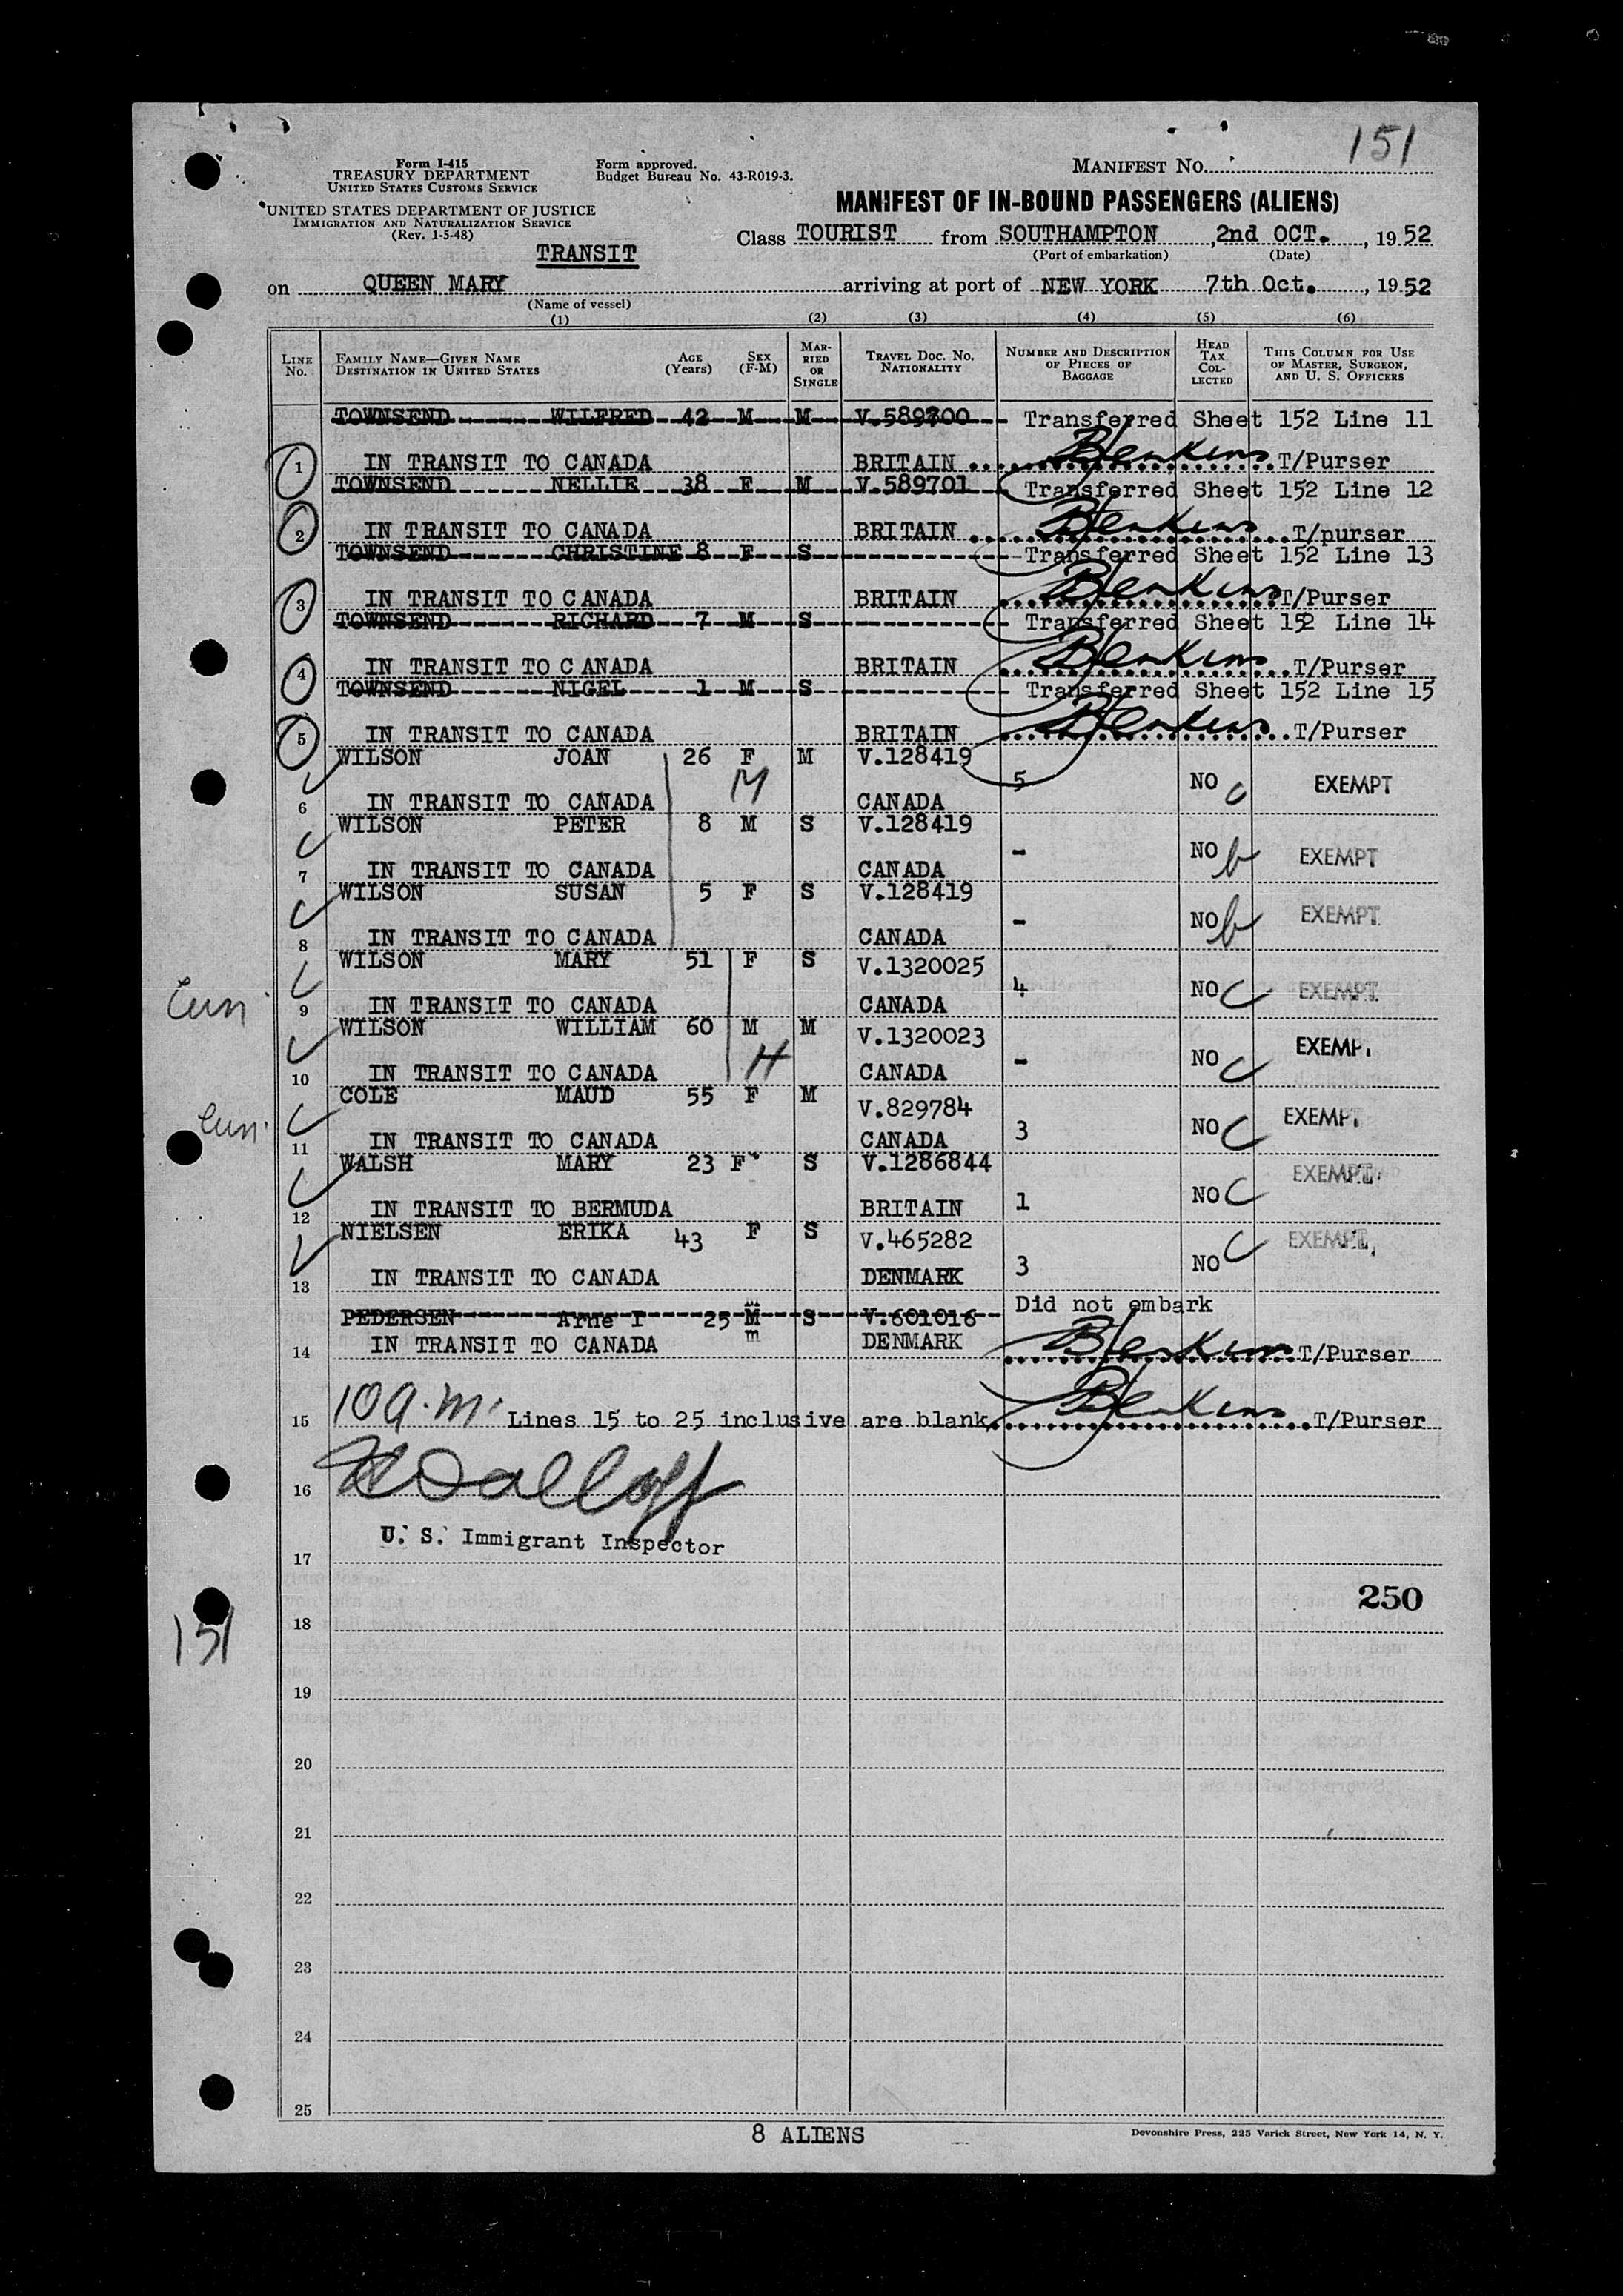 151
Form I-415
TREASURY DEPARTMENT
UNITED STATES CUSTOMS SERVICE
Form approved.
Budget Bureau No. 43-R019-3.
MANIFEST NO.
UNITED STATES DEPARTMENT OF JUSTICE
IMMIGRATION AND NATURALIZATION SERVICE
(Rev. 1-5-48)
MANIFEST OF IN-BOUND PASSENGERS (ALIENS)
TRANSIT
Class TOURIST from SOUTHAMPTON, 2nd OCT., 1952
(Port of embarkation) (Date)
on QUEEN MARY arriving at port of NEW YORK 7th Oct., 1952
(Name of vessel)
(1) (2) (3) (4) (5) (6)
LINE No. FAMILY NAME—GIVEN NAME DESTINATION IN UNITED STATES AGE (Years) SEX (F-M) MARRIED OR SINGLE TRAVEL DOC. NO. NATIONALITY NUMBER AND DESCRIPTION OF PIECES OF BAGGAGE HEAD TAX COLLECTED THIS COLUMN FOR USE OF MASTER, SURGEON, AND U. S. OFFICERS
TOWNSEND WILFRED 42 M M V.589700 Transferred Sheet 152 Line 11
1 IN TRANSIT TO CANADA BRITAIN T/Purser
TOWNSEND NELLIE 38 F M V.589701 Transferred Sheet 152 Line 12
2 IN TRANSIT TO CANADA BRITAIN T/purser
TOWNSEND CHRISTINE 8 F S Transferred Sheet 152 Line 13
3 IN TRANSIT TO CANADA BRITAIN T/Purser
TOWNSEND RICHARD 7 M S Transferred Sheet 152 Line 14
4 IN TRANSIT TO CANADA BRITAIN T/Purser
TOWNSEND NIGEL 1 M S Transferred Sheet 152 Line 15
5 IN TRANSIT TO CANADA BRITAIN T/Purser
WILSON JOAN 26 F M V.128419
6 IN TRANSIT TO CANADA M CANADA 5 NO c EXEMPT
WILSON PETER 8 M S V.128419
7 IN TRANSIT TO CANADA CANADA - NO b EXEMPT
WILSON SUSAN 5 F S V.128419
8 IN TRANSIT TO CANADA CANADA - NO b EXEMPT
WILSON MARY 51 F S V.1320025
9 IN TRANSIT TO CANADA CANADA 4 NO C EXEMPT
WILSON WILLIAM 60 M M V.1320023
10 IN TRANSIT TO CANADA H CANADA - NO C EXEMP.
COLE MAUD 55 F M V.829784
11 IN TRANSIT TO CANADA CANADA 3 NO C EXEMPT
WALSH MARY 23 F S V.1286844
12 IN TRANSIT TO BERMUDA BRITAIN 1 NO C EXEMPT
NIELSEN ERIKA 43 F S V.465282
13 IN TRANSIT TO CANADA DENMARK 3 NO C EXEMPT
PEDERSEN Arne I 25 M S V.601016 Did not embark
14 IN TRANSIT TO CANADA m DENMARK T/Purser
15 10 a.m. Lines 15 to 25 inclusive are blank T/Purser
16
U. S. Immigrant Inspector
17
250
18
151
19
20
21
22
23
24
25
8 ALIENS
Devonshire Press, 225 Varick Street, New York 14, N. Y.